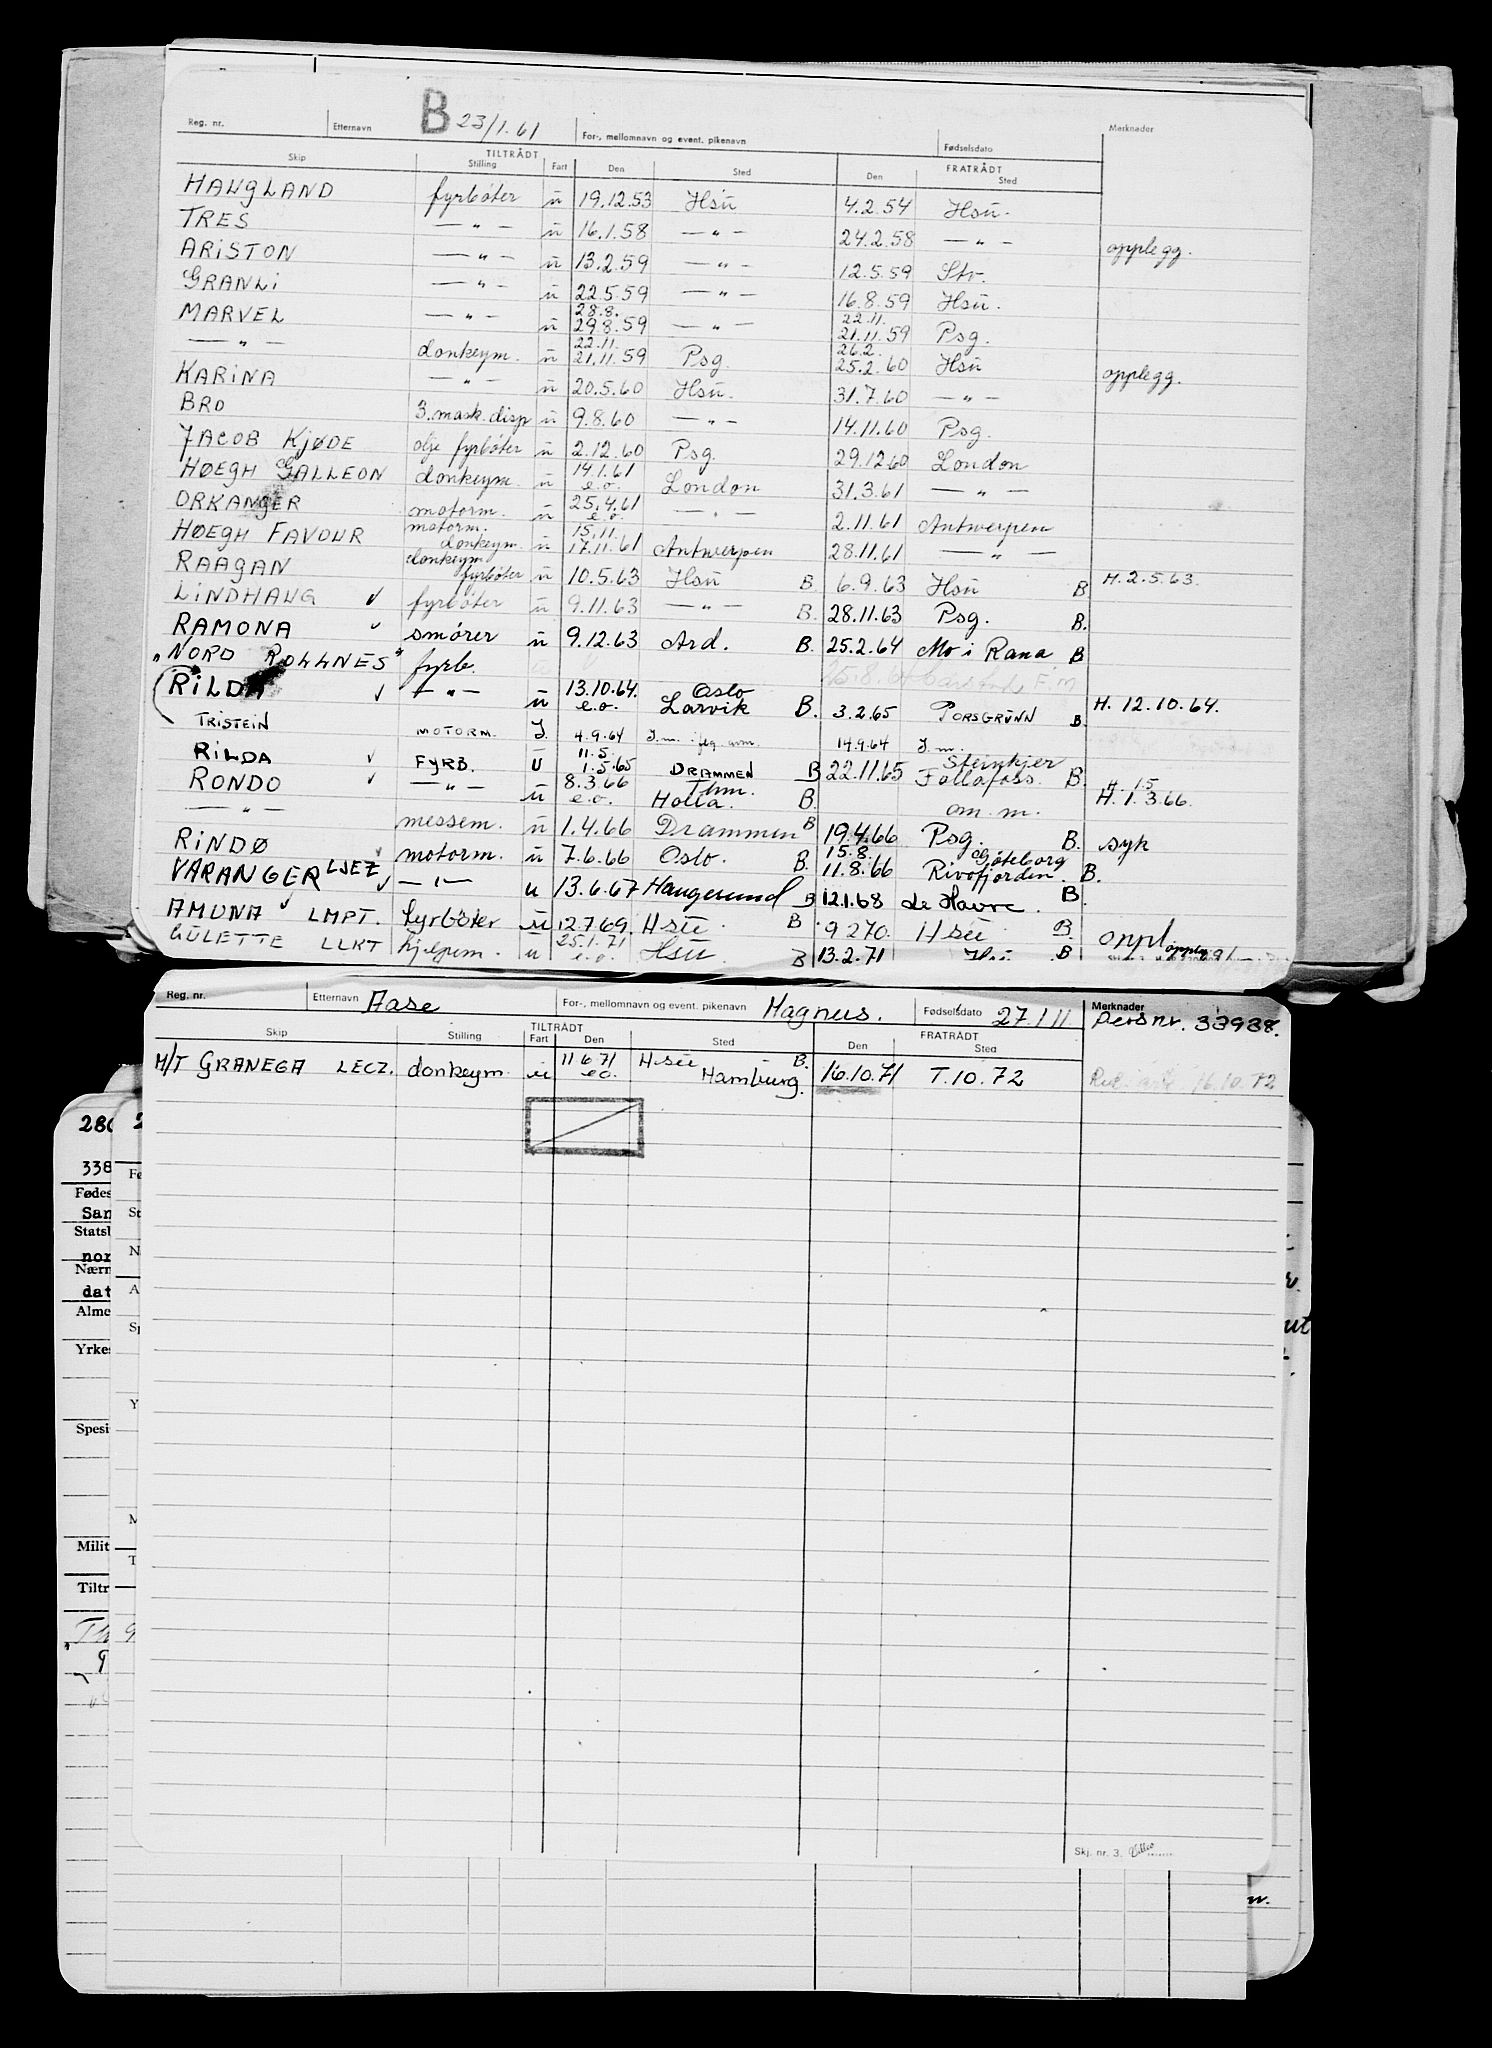 B 23/1.61
Reg. nr. Etternavn For-, mellomnavn og event. pikenavn Fødselsdato Merknader
TILTRÅDT FRATRÅDT
Skip Stilling Fart Den Sted Den Sted
HAUGLAND fyrbøter u 19.12.53 Hsü 4.2.54 Hsü.
TRES — " — u 16.1.58 — " — 24.2.58 — " — opplegg.
ARISTON — " — u 13.2.59 — " — 12.5.59 Stv.
GRANLI — " — u 22.5.59 — " — 16.8.59 Hsü.
MARVEL — " — u 28.8. 29.8.59 — " — 22.11. 21.11.59 Psg.
— " — donkeym. u 22.11. 21.11.59 Psg. 26.2. 25.2.60 Hsü opplegg.
KARINA — " — u 20.5.60 Hsü. 31.7.60 — " —
BRO 3. mask. disp u 9.8.60 — " — 14.11.60 Psg.
JACOB KJØDE olje fyrbøter u 2.12.60 Psg. 29.12.60 London
HØEGH GALLEON donkeym. u 14.1.61 e.o. London 31.3.61 — " —
ORKANGER motorm. u 25.4.61 e.o. — " — 2.11.61 Antwerpen
HØEGH FAVOUR motorm. donkeym. u 15.11. 17.11.61 Antwerpen 28.11.61 — " —
RAAGAN donkeym fyrbøter u 10.5.63 Hsü B. 6.9.63 Hsü B. H. 2.5.63.
LINDHAUG ✓ fyrbøter u 9.11.63 — " — B. 28.11.63 Psg. B.
RAMONA ✓ smører u 9.12.63 Ard. B. 25.2.64 Mo i Rana B
"NORD ROLLNES" fyrb.
RILDA ✓ — " — u 13.10.64. e.o. Oslo Larvik B. 3.2.65 PORSGRUNN B. H. 12.10.64.
TRISTEIN MOTORM. J. 4.9.64 14.9.64 J.m.
RILDA ✓ FYRB. U 11.5. 1.5.65 DRAMMEN B 22.11.65 Steinkjer Follafoss B.
RONDO ✓ — " — u 8.3.66 e.o. Thm. Holla. B. om. m. H. 1.5 H. 1.3.66.
— " — messem. u 1.4.66 Drammen B 19.4.66 Psg. B. syk
RINDØ ✓ motorm. u 7.6.66 Oslo. B. 15.8. 11.8.66 Gøteborg Rivøfjorden. B.
VARANGER LJEZ ✓ — " — u 13.6.67 Haugesund B 12.1.68 Le Havre. B.
AMUNA LMPT. fyrbøter u 12.7.69. Hsü. B 9.2.70. Hsü B. oppl.
GULETTE LLKT hjelpem. u 25.1.71 e.o. Hsü. B 13.2.71 Hsü B
Reg. nr. Etternavn Aase For-, mellomnavn og event. pikenavn Magnus. Fødselsdato 27.1.11 Merknader Persnr. 33938.
TILTRÅDT FRATRÅDT
Skip Stilling Fart Den Sted Den Sted
M/T GRANEGA LECZ. donkeym. u 11.6.71 e.o. Hsü Hamburg. B. 16.10.71 T.10.72 16.10.72
280 2
338
Fødes
San
Statsl
nor
Nærn
dat
Alme
Yrkes
Spesi
Milit
Tiltr
Skj. nr. 3.